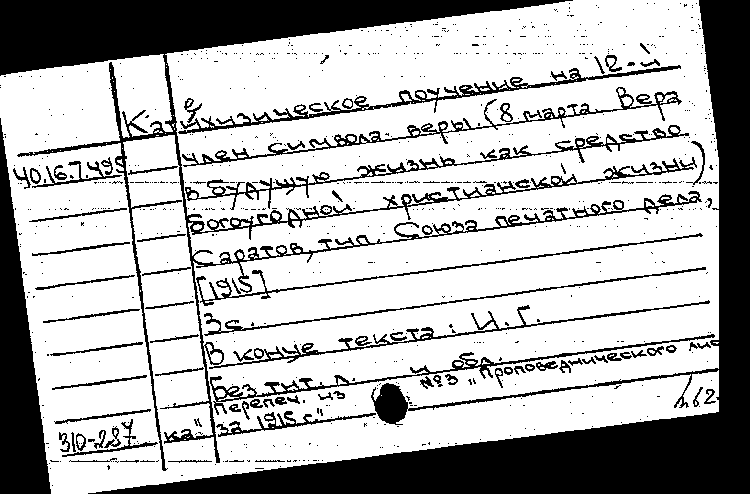 Катехизическое поучение на 12-й
40.16.7.495. член символа веры. (8 марта. Вера
в будущую жизнь как средство
богоугодной христианской жизни).
Саратов, тип. Союза печатного дела,
[1915]
3 с.
В конце текста: И. Г.
Без тит. л. и обл.
Перепеч. из №3 „Проповеднического лис
310-287 ка" за 1915 г."